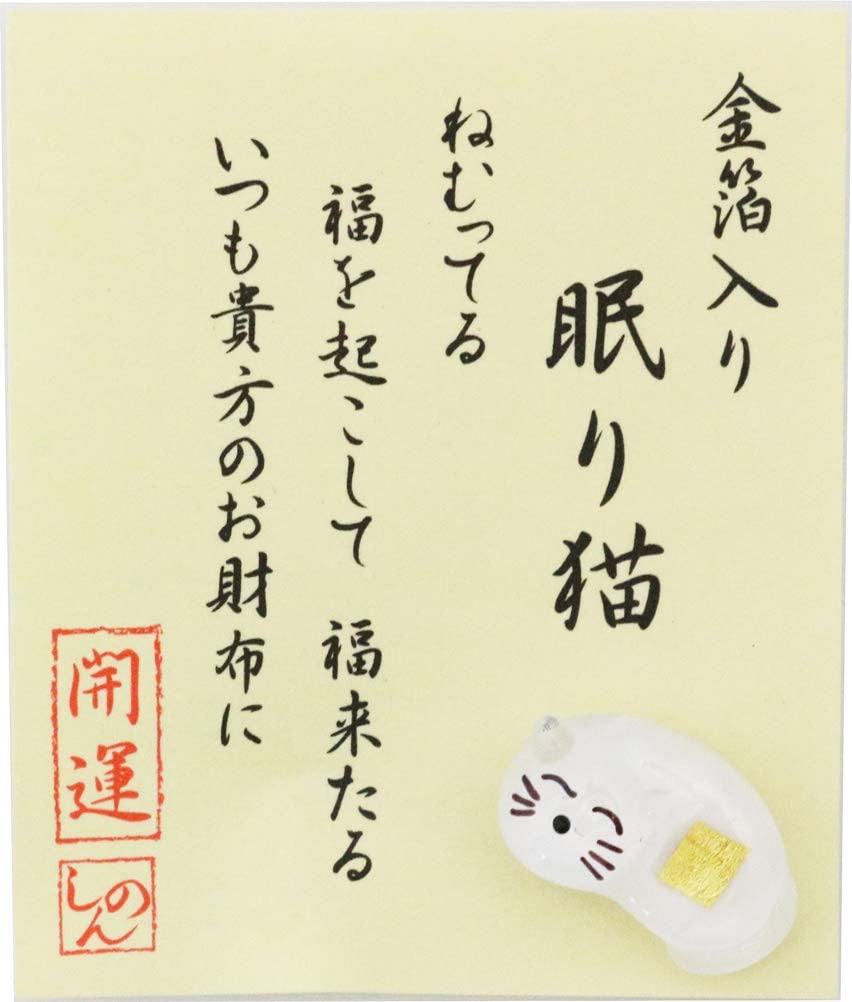 金箔入り
眠り猫
ねむってる
福を起こして 福来たる
いつも貴方のお財布に
開運
しのん